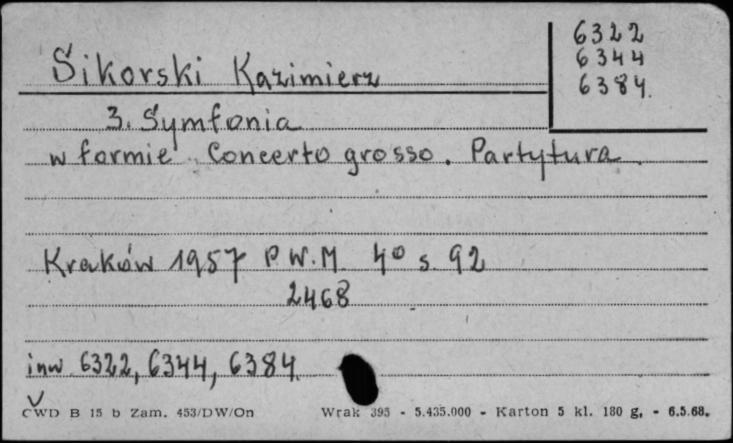 6322
6344
6384.
Sikorski Kazimierz
3. Symfonia
w formie Concerto grosso. Partytura.
Kraków 1957 P.W.M. 4° s. 92
2468
inw. 6322, 6344, 6384.
CWD B 15 b Zam. 453/DW/On Wrak 395 - 5.435.000 - Karton 5 kl. 180 g. - 6.5.68.